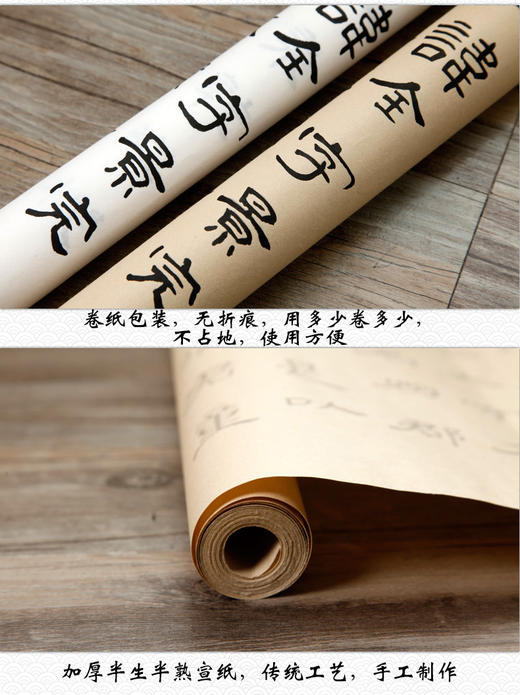 諱全字景完
諱全字景完
卷纸包装，无折痕，用多少卷多少，
不占地，使用方便
加厚半生半熟宣纸，传统工艺，手工制作